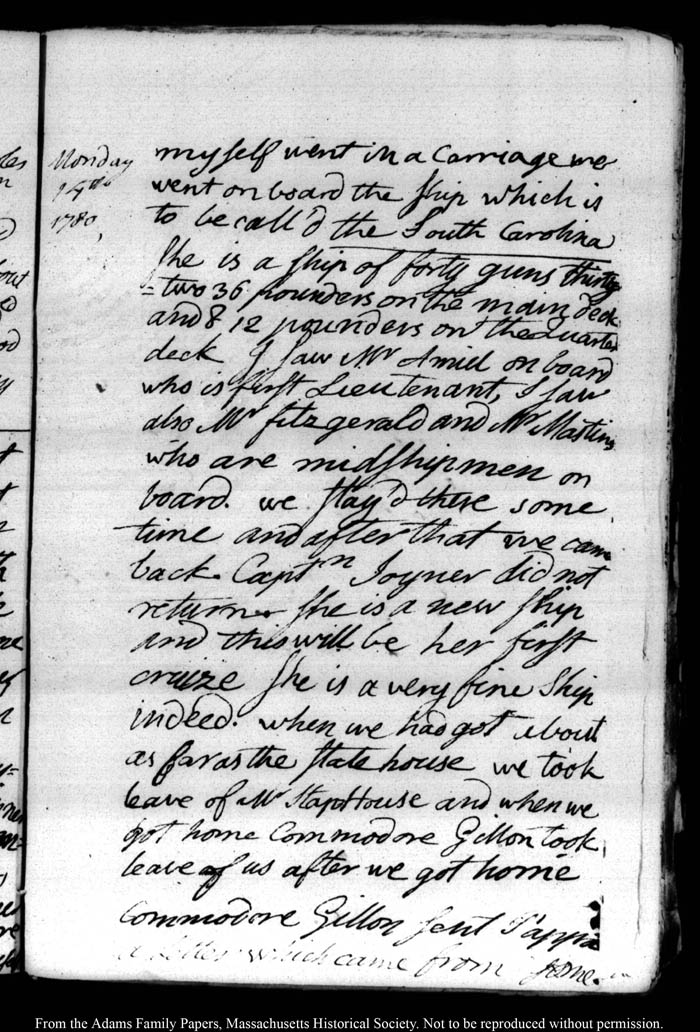 Monday
14th
1780,
myself went in a Carriage we
went on board the ship which is
to be call'd the South Carolina
She is a ship of forty guns thirty
=two 36 pounders on the main deck
and 8 12 pounders on the Quarter
deck I saw Mr Amiel on board
who is first Lieutenant, I saw
also Mr fitzgerald and Mr Mastins
who are midshipmen on
board. we stay'd there some
time and after that we came
back. Captn Joyner did not
return. She is a new ship
and this will be her first
cruize She is a very fine Ship
indeed. when we had got about
as far as the state house we took
leave of Mr StaptHouse and when we
got home Commodore Gillon took
leave of us after we got home
Commodore Gillon sent Pappa
a letter which came from
From the Adams Family Papers, Massachusetts Historical Society. Not to be reproduced without permission.